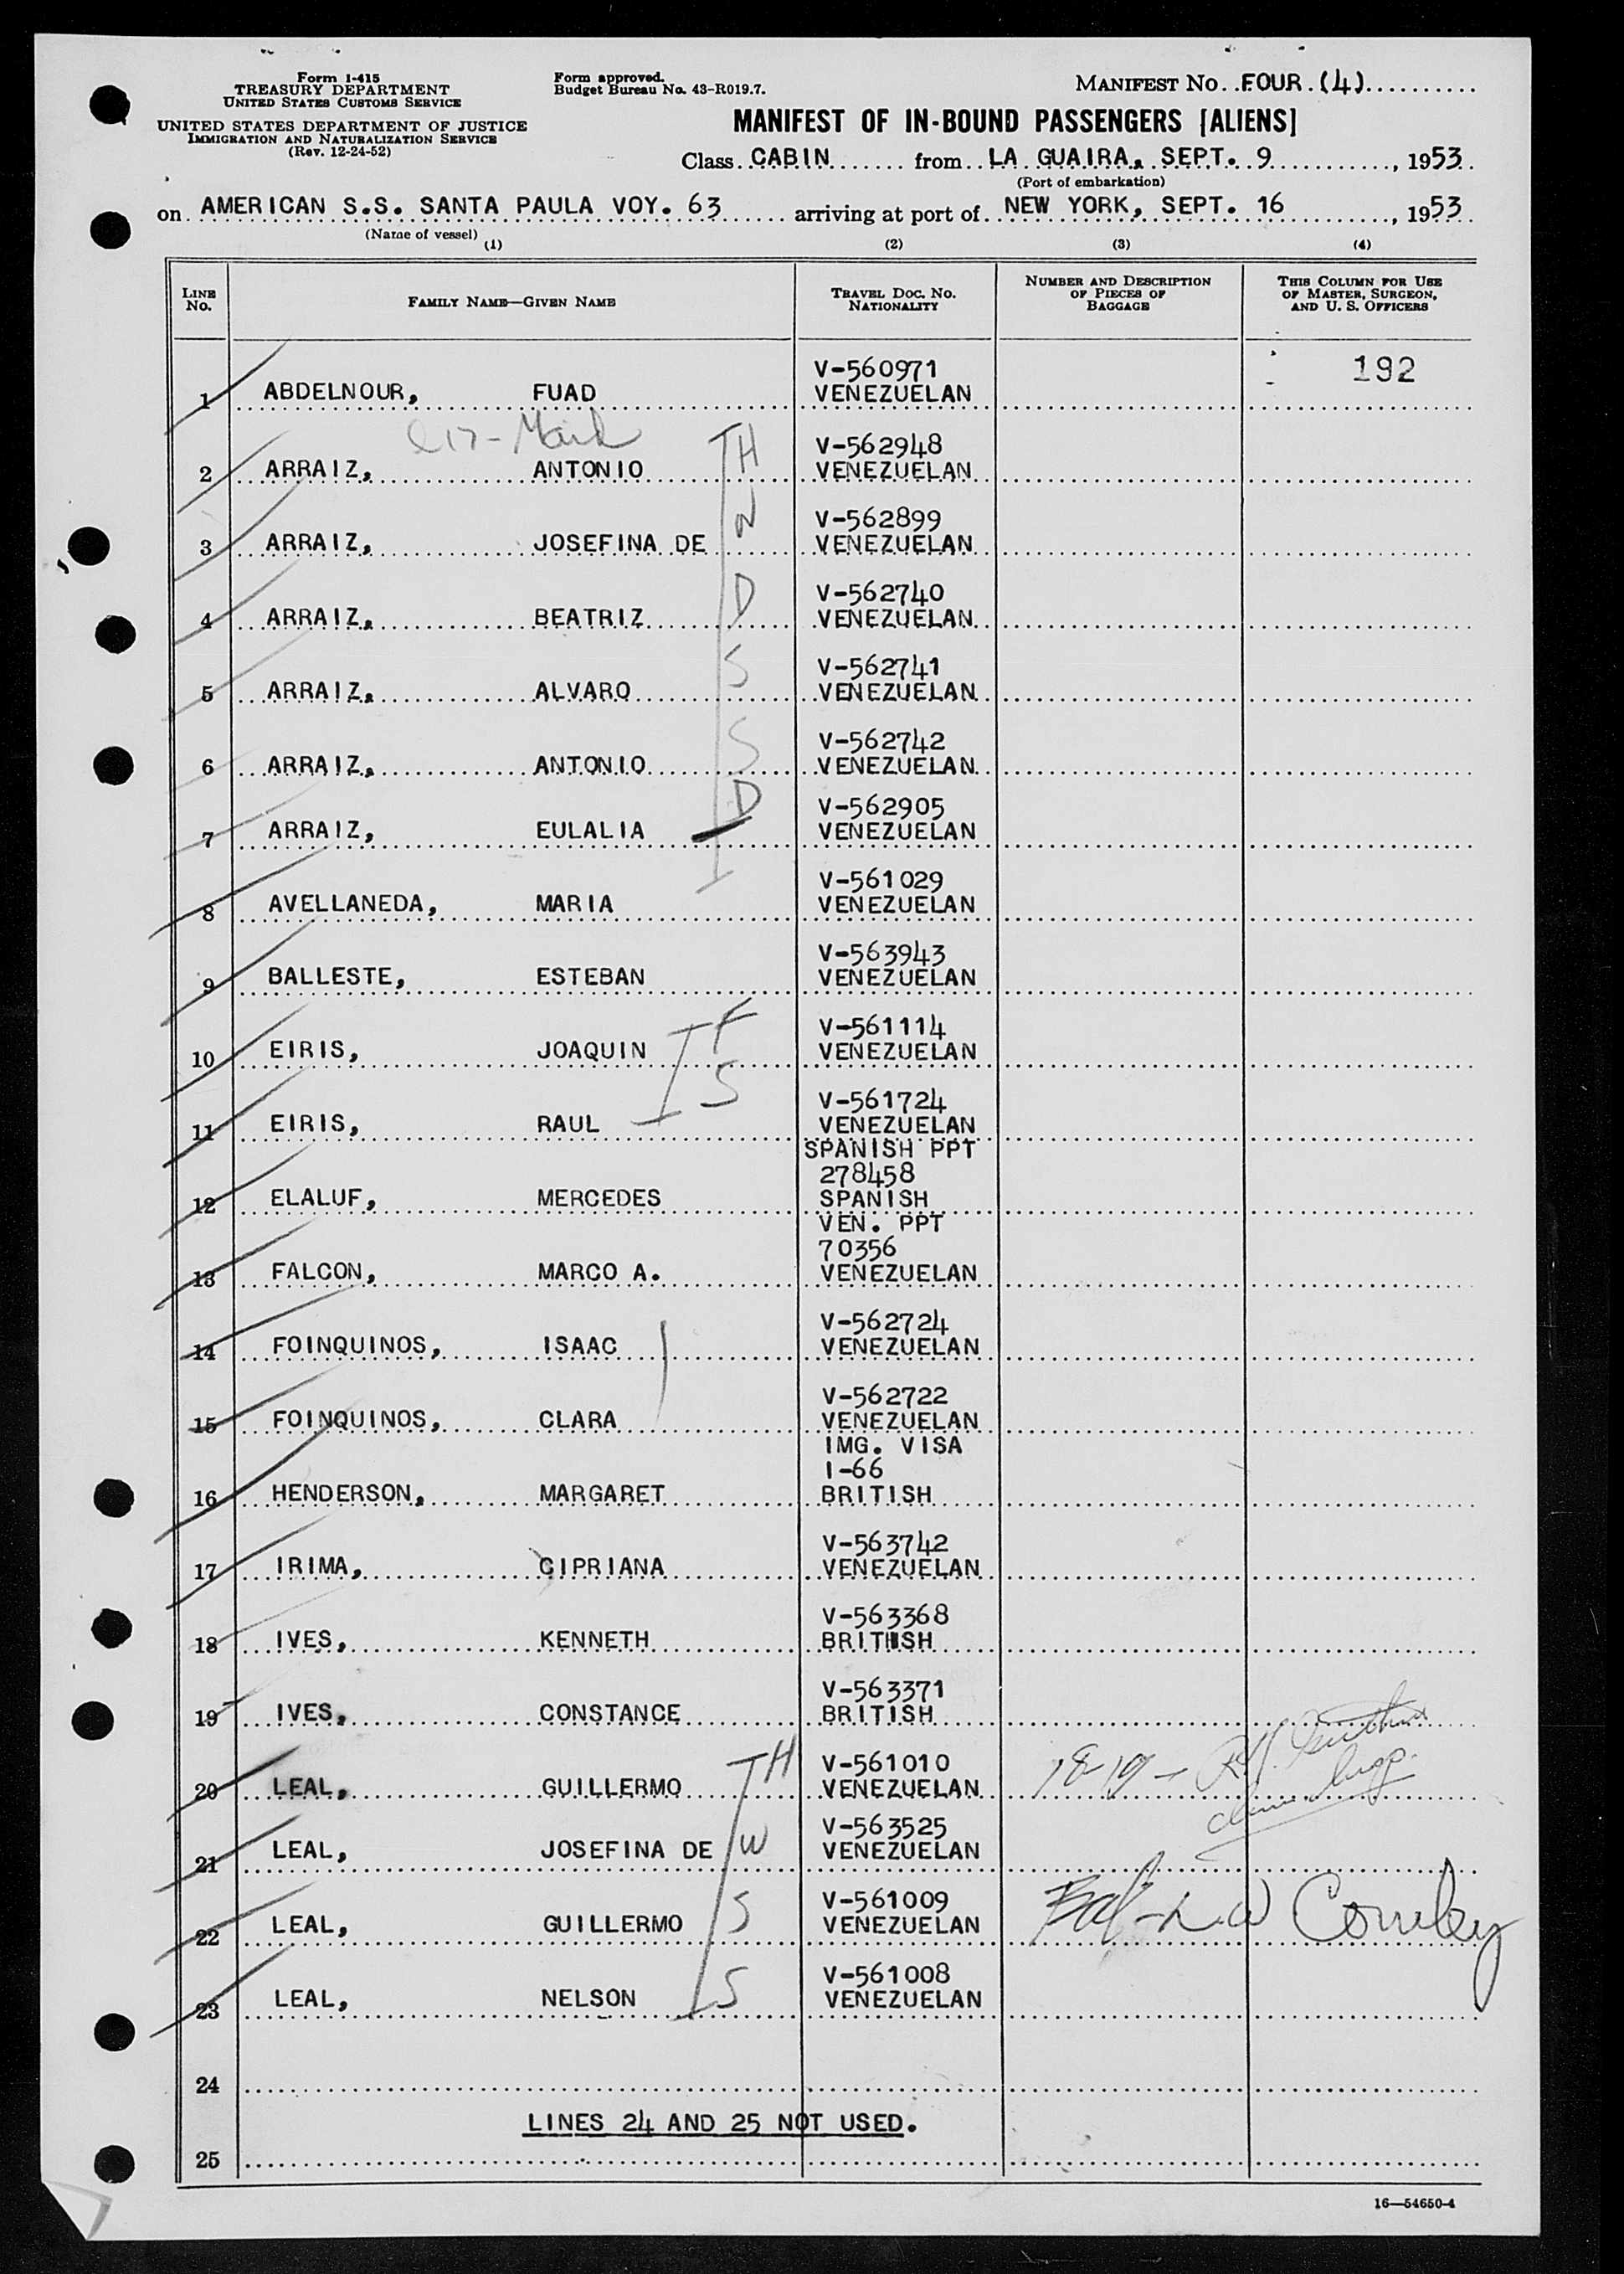 Form 1-415
TREASURY DEPARTMENT
UNITED STATES CUSTOMS SERVICE
UNITED STATES DEPARTMENT OF JUSTICE
IMMIGRATION AND NATURALIZATION SERVICE
(Rev. 12-24-52)
Form approved.
Budget Bureau No. 43-R019.7.
MANIFEST NO. FOUR (4)
MANIFEST OF IN-BOUND PASSENGERS [ALIENS]
Class CABIN from LA GUAIRA, SEPT. 9, 1953
(Port of embarkation)
on AMERICAN S.S. SANTA PAULA VOY. 63 arriving at port of NEW YORK, SEPT. 16, 1953
(Name of vessel)
(1) (2) (3) (4)
LINE NO. FAMILY NAME—GIVEN NAME TRAVEL DOC. NO. NATIONALITY NUMBER AND DESCRIPTION OF PIECES OF BAGGAGE THIS COLUMN FOR USE OF MASTER, SURGEON, AND U. S. OFFICERS
V-560971 192
1 ABDELNOUR, FUAD VENEZUELAN
H V-562948
2 ARRAIZ, ANTONIO VENEZUELAN
W V-562899
3 ARRAIZ, JOSEFINA DE VENEZUELAN
D V-562740
4 ARRAIZ, BEATRIZ VENEZUELAN
S V-562741
5 ARRAIZ, ALVARO VENEZUELAN
S V-562742
6 ARRAIZ, ANTONIO VENEZUELAN
D V-562905
7 ARRAIZ, EULALIA VENEZUELAN
V-561029
8 AVELLANEDA, MARIA VENEZUELAN
V-563943
9 BALLESTE, ESTEBAN VENEZUELAN
F V-561114
10 EIRIS, JOAQUIN VENEZUELAN
S V-561724
11 EIRIS, RAUL VENEZUELAN
SPANISH PPT
278458
12 ELALUF, MERCEDES SPANISH
VEN. PPT
70356
13 FALCON, MARCO A. VENEZUELAN
V-562724
14 FOINQUINOS, ISAAC VENEZUELAN
V-562722
15 FOINQUINOS, CLARA VENEZUELAN
IMG. VISA
I-66
16 HENDERSON, MARGARET BRITISH
V-563742
17 IRIMA, CIPRIANA VENEZUELAN
V-563368
18 IVES, KENNETH BRITISH
V-563371
19 IVES, CONSTANCE BRITISH
H V-561010 18-19 -
20 LEAL, GUILLERMO VENEZUELAN
V-563525
21 LEAL, JOSEFINA DE W VENEZUELAN
V-561009
22 LEAL, GUILLERMO S VENEZUELAN Bal-
V-561008
23 LEAL, NELSON S VENEZUELAN
24
LINES 24 AND 25 NOT USED.
25
16—54650-4